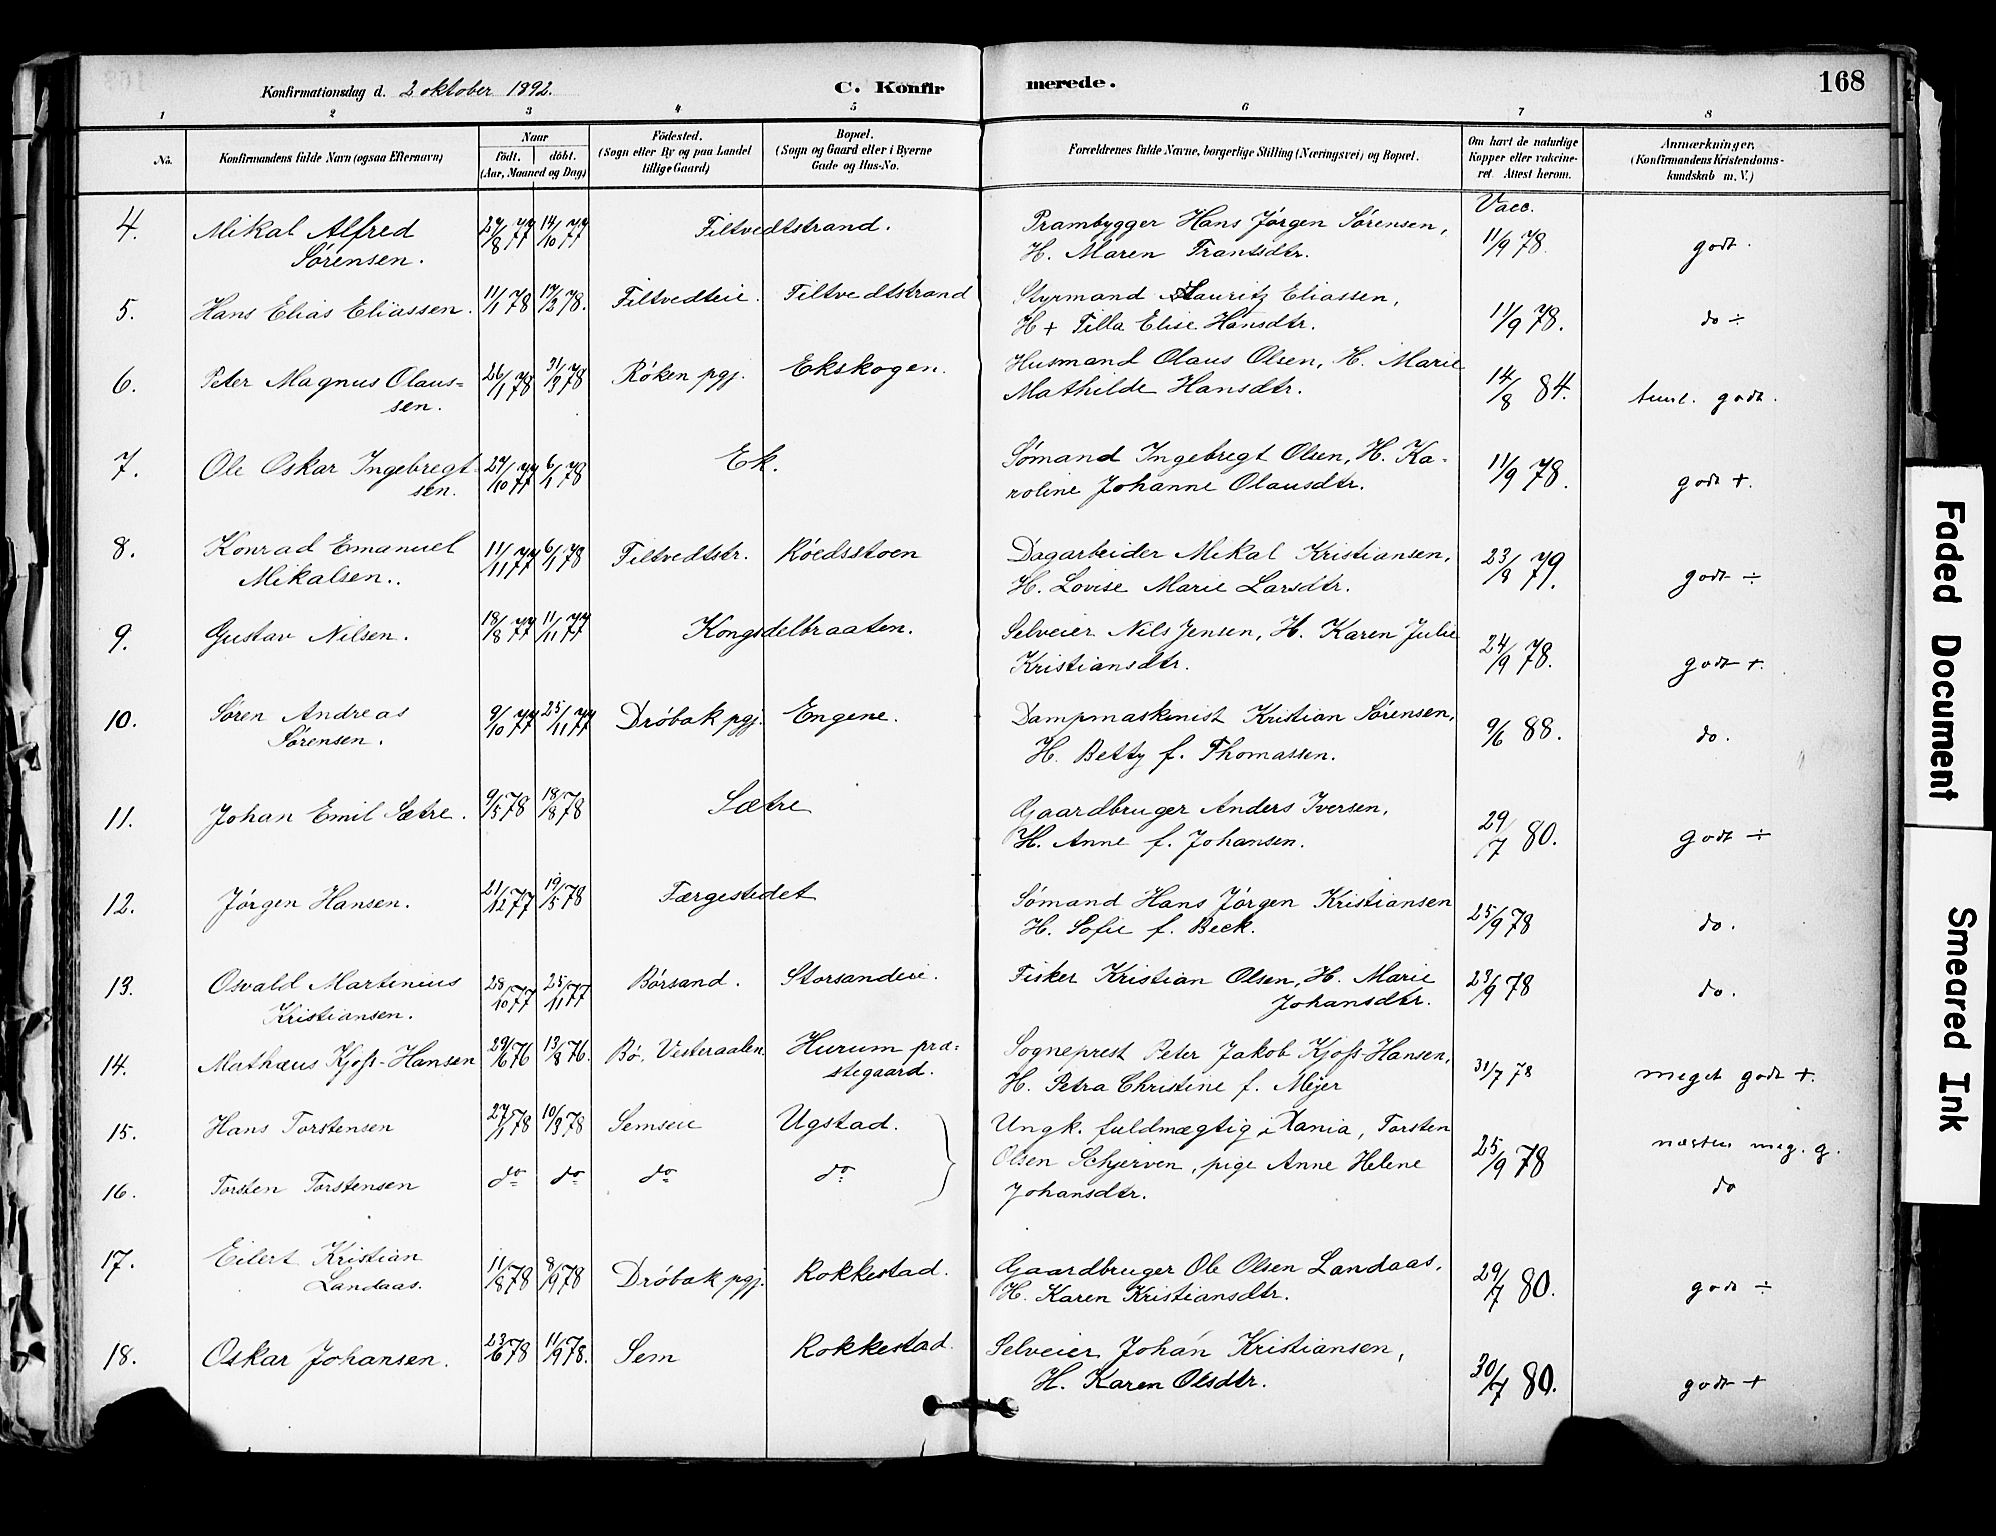 Konfirmationsdag d. 2 oktober 1892.
C. Konfirmerede.
168
1 2 3 4 5 6 7 8
No.
Konfirmandens fulde Navn (ogsaa Efternavn)
Naar
født. døbt.
(Aar, Maaned og Dag)
Fødested.
(Sogn eller By og paa Landet
tillige Gaard)
Bopæl.
(Sogn og Gaard eller i Byerne
Gade og Hus-No.
Forældrenes fulde Navne, borgerlige Stilling (Næringsvei) og Bopæl.
Om havt de naturlige
Kopper eller vakcine-
ret. Attest herom.
Anmærkninger.
(Konfirmandens Kristendoms-
kundskab m. V.)
Vacc.
4. Mikal Alfred 27/8 77 14/10 77 Filtvedtstrand. Prambygger Hans Jørgen Sørensen, 11/9 78. godt.
Sørensen. H. Maren Frantsdtr.
5. Hans Elias Eliassen. 11/1 78 17/2 78. Filtvedteie. Filtvedtstrand Styrmand Lauritz Eliassen, 11/9 78. do ÷
H + Tilla Elise Hansdtr.
6. Peter Magnus Olaus- 26/1 78 31/3 78 Røken pgj. Ekskogen. Husmand Olaus Olsen, H. Marie 14/8 84. teml. godt.
sen. Mathilde Hansdtr.
7. Ole Oskar Ingebregt- 27/10 77 6/1 78 Ek. Sømand Ingebregt Olsen, H. Ka- 11/9 78. godt +.
sen. roline Johanne Olausdtr.
8. Konrad Emanuel 11/11 77 6/1 78 Filtvedtstr. Røedsstoen Dagarbeider Mikal Kristiansen, 23/8 79. godt ÷
Mikalsen.. H. Lovise Marie Larsdtr.
9. Gustav Nilsen. 18/8 77 11/11 77 Kongsdelbraaten. Selveier Nils Jensen, H. Karen Julie 24/9 78. godt +.
Kristiansdtr.
10. Søren Andreas 9/10 77 25/11 77 Drøbak pgj. Engene. Dampmaskinist Kristian Sørensen, 9/6 88. do.
Sørensen. H. Betty f. Thomassen.
11. Johan Emil Sætre. 9/5 78 18/8 78 Sætre Gaardbruger Anders Iversen, 29/7 80. godt ÷
H. Anne f. Johansen.
12. Jørgen Hansen. 21/12 77 19/5 78 Færgestedet Sømand Hans Jørgen Kristiansen 25/9 78 do.
H. Sofie f. Beck.
13. Osvald Martinius 28/10 77 25/11 77 Børsand. Storsandeie. Fisker Kristian Olsen, H. Marie 23/9 78 do.
Kristiansen. Johansdtr.
14. Mathæus Kjofs-Hansen 29/6 76 13/8 76. Bø, Vesteraalen Hurum præ- Sogneprest Peter Jakob Kjofs-Hansen, 31/7 78 meget godt +.
stegaard. H. Petra Christine f. Meyer
15. Hans Torstensen 27/1 78 10/3 78 Semseie Ugstad. Ungk. fuldmægtig i Xania, Torsten 25/9 78 næsten meg. g.
Olsen Schjerven, pige Anne Helene
16. Torsten Torstensen do do do do Johansdtr. do
17. Eilert Kristian 11/8 78 8/9 78 Drøbak pgj. Rokkestad. Gaardbruger Ole Olsen Landaas, 29/7 80. godt ÷
Landaas. H. Karen Kristiansdtr.
18. Oskar Johansen. 23/6 78 11/9 78. Sem Rokkestad. Selveier Johan Kristiansen, 30/7 80. godt +
H. Karen Olsdtr.
Faded Document
Smeared Ink